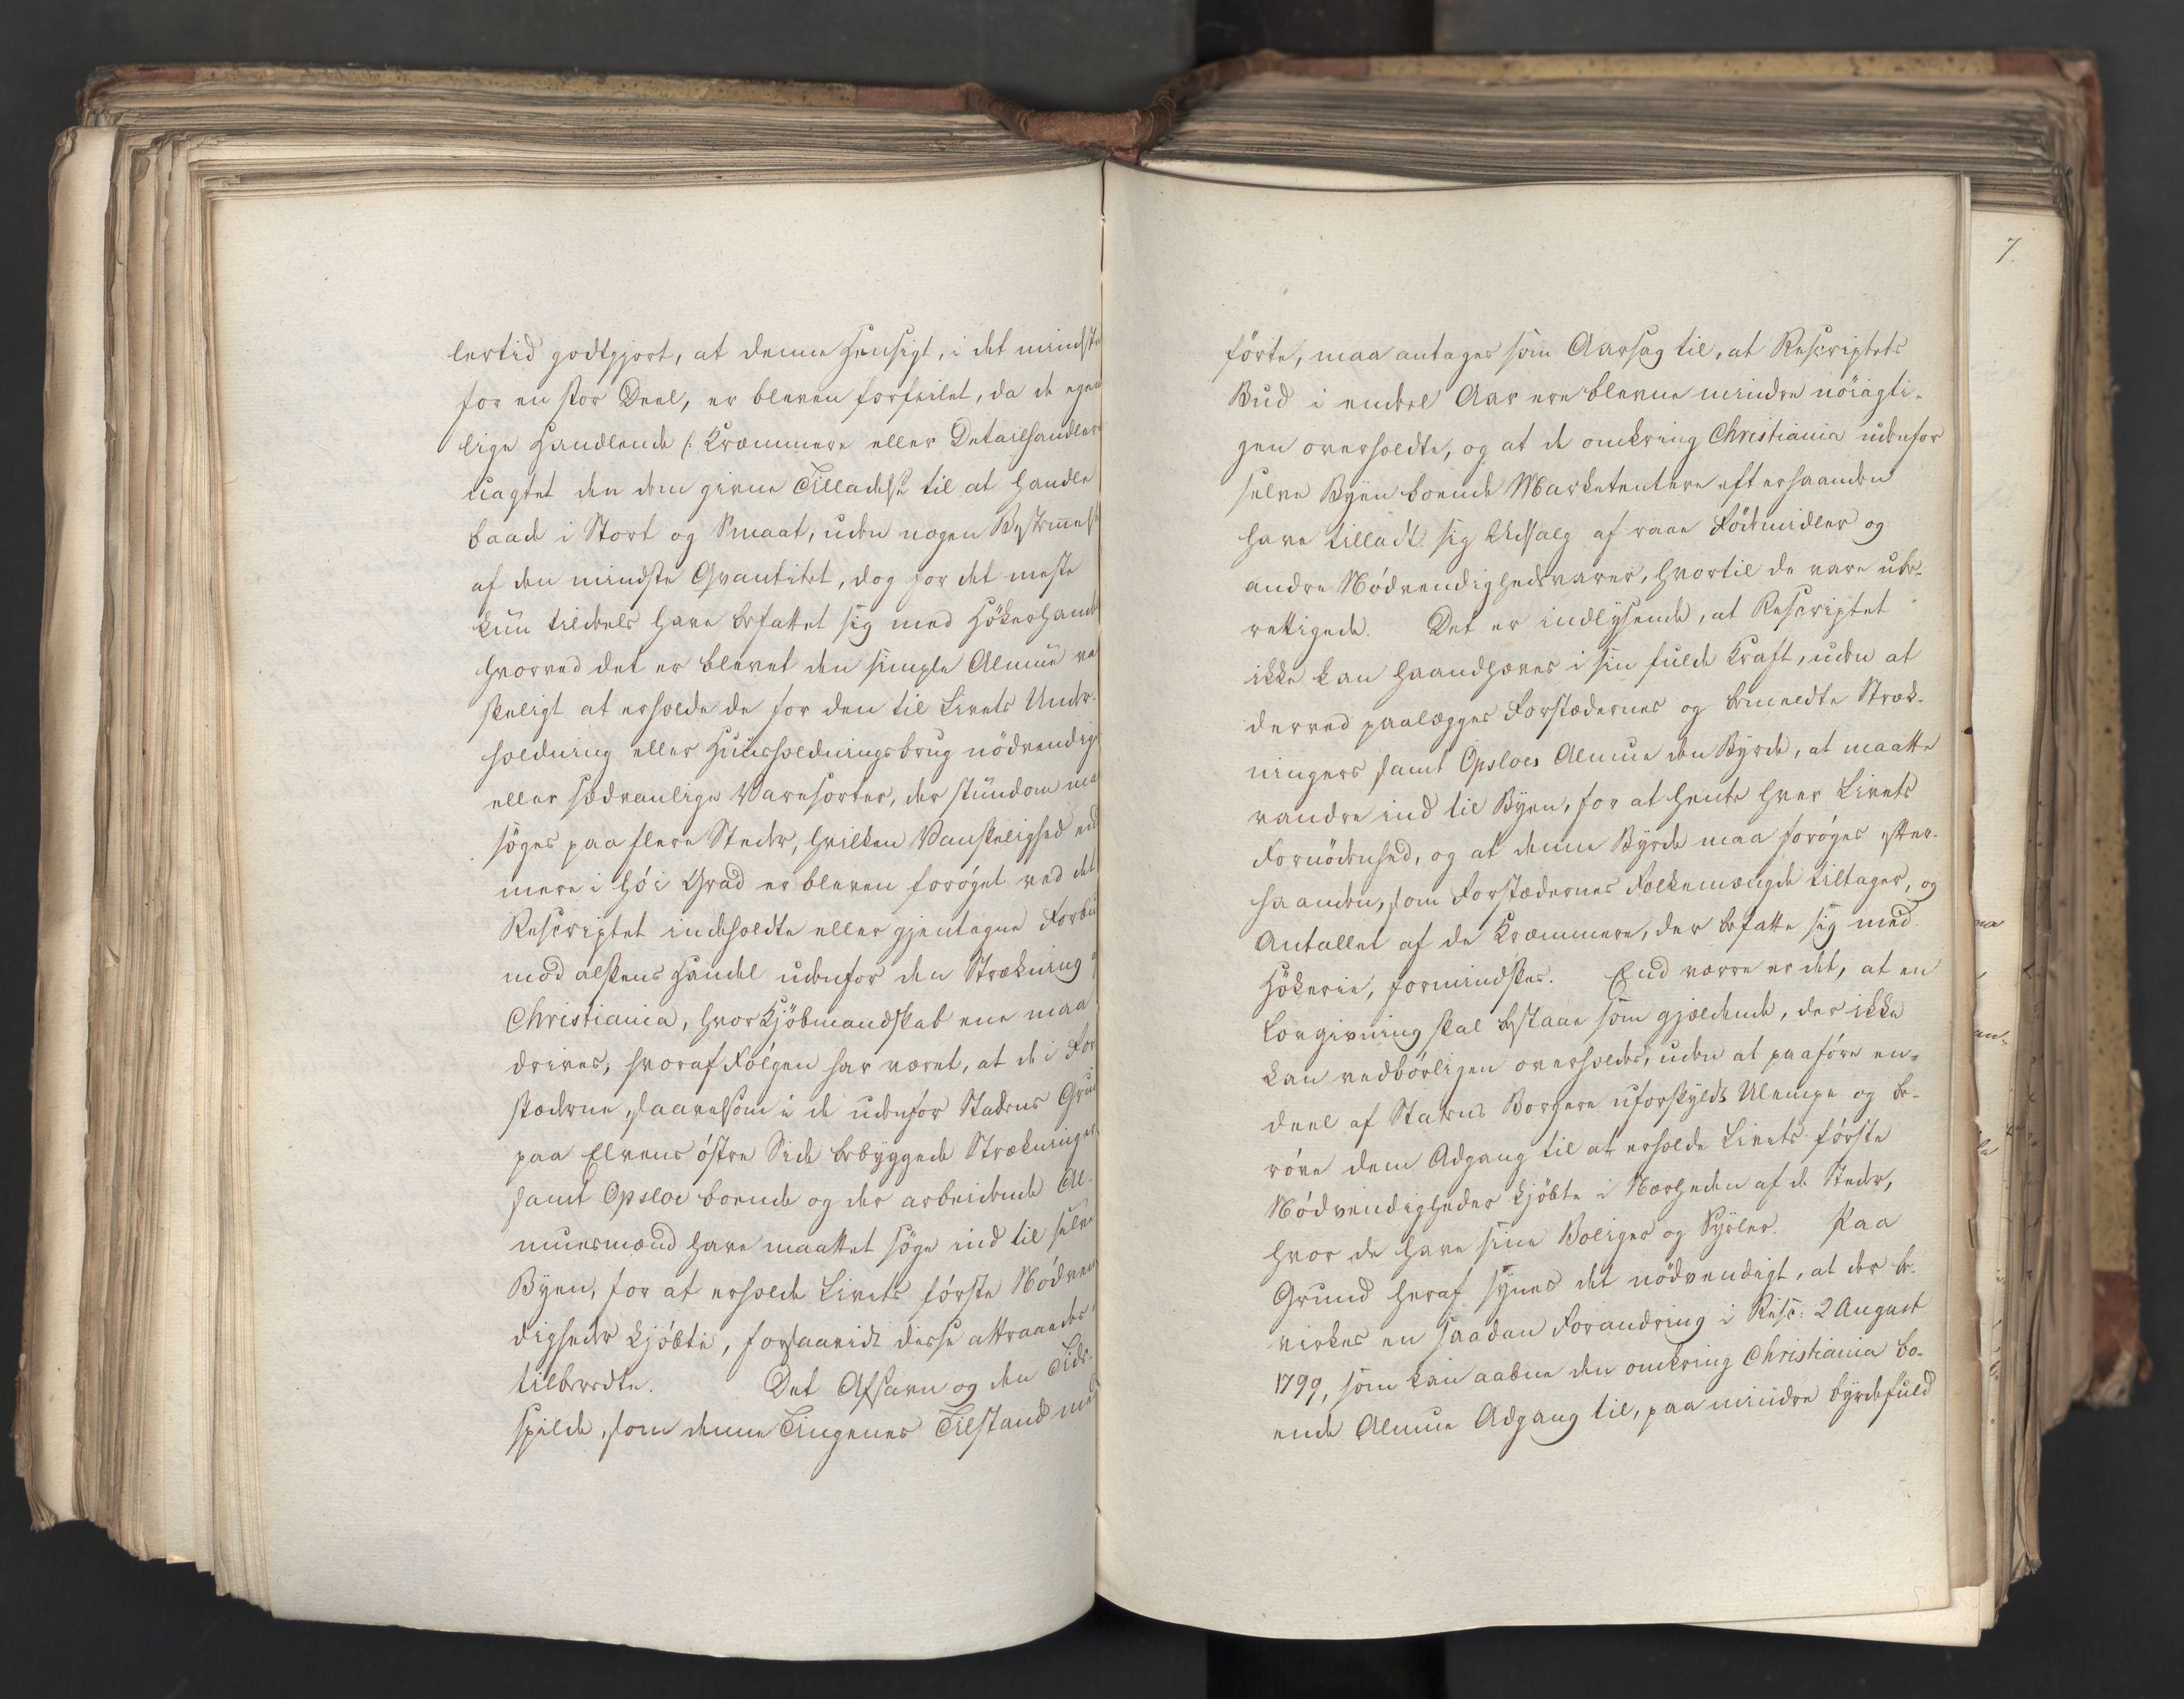 lertid godtgjort, at denne Hensigt, i det mindste
for en stor Deel, er bleven forfeilet, da de egen
lige Handlende /: Kræmmere eller Detailhandlere
uagtet den dem givne Tilladelse til at handle
baade i Stort og Smaat, uden nogen Bestemmelse
af den mindste Qvantitet, dog for det meste
kun tildeels have befattet sig med Hökerhandel
hvorved det er blevet den simple Almue va
skeligt at erholde de for den til Livets Under-
holdning eller Huusholdningsbrug nödvendige
eller sædvanlige Varesorter, der stundom maa
söges paa flere Steder, hvilken Vanskelighed end
mere i höi Grad er bleven foröget ved det
Rescriptet indeholdte eller gjentagne Forbud
mod alskens Handel udenfor den Strækning
Christiania, hvor Kjöbmandskab ene maa
drives; hvoraf Fölgen har været, at de i For
stæderne, saavelsom i de udenfor Stadens Grund
paa Elvens östre Side bebyggede Strækninger
samt Opsloe boende og der arbeidende Al-
muesmænd have maattet söge ind til selve
Byen, for at erholde Livets förste Nödven
digheder kjöbte, forsaavidt disse attraaedes
tilberedte. Det Afsavn og den Tids-
spilde, som denne Tingenes Tilstand med
7.
förte, maa antages som Aarsag til, at Rescriptets
Bud i endeel Aar ere blevne mindre nöiagti-
gen overholdte, og at de omkring Christiania udenfor
selve Byen boende Marketentere efterhaanden
have tilladt sig Udsalg af raae Födemidler og
andre Nödvendighedsvarer, hvortil de vare ube-
rettigede. Det er indlysende, at Rescriptet
ikke kan haandhæves i sin fulde Kraft, uden at
derved paalægges Forstædernes og bemeldte Stræk-
ningers samt Opsloes Almue den Byrde, at maatte
vandre ind til Byen, for at hente hver Livets
Fornödenhed, og at denne Byrde maa foröges efter-
haanden, som Forstædernes Folkemængde tiltager, og
Antallet af de Kræmmere, der befatte sig med
Hökerie, formindskes. End værre er det, at en
Lovgivning skal bestaae som gjeldende, der ikke
kan vedbörligen overholdes, uden at paaföre en-
deel af Statens Borgere uforskyldt Ulempe og be-
röve dem Adgang til at erholde Livets förste
Nödvendigheder kjöbte i Nærheden af de Steder,
hvor de have sine Boliger og Sysler. Paa
Grund heraf synes det nödvendigt, at der be-
virkes en saadan Forandring i Resc: 2 August
1799, som kan aabne den omkring Christiania bo-
ende Almue Adgang til, paa mindre byrdefuld